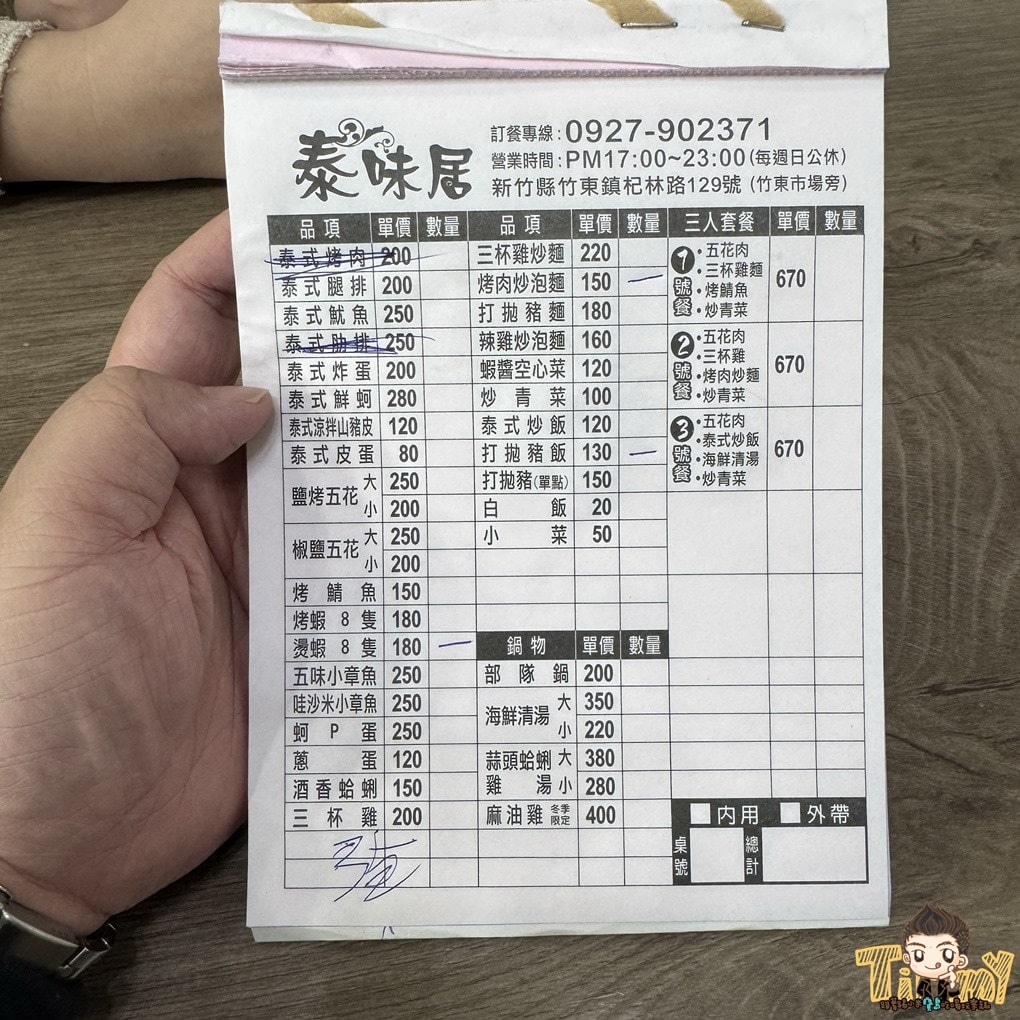 泰味居
訂餐專線:0927-902371
營業時間:PM17:00~23:00(每週日公休)
新竹縣竹東鎮杞林路129號 (竹東市場旁)
品項 單價 數量
泰式烤肉 200
泰式腿排 200
泰式魷魚 250
泰式肋排 250
泰式炸蛋 200
泰式鮮蚵 280
泰式涼拌山豬皮 120
泰式皮蛋 80
鹽烤五花 大 250
小 200
椒鹽五花 大 250
小 200
烤鯖魚 150
烤蝦8隻 180
燙蝦8隻 180 一
五味小章魚 250
哇沙米小章魚 250
蚵P蛋 250
蔥蛋 120
酒香蛤蜊 150
三杯雞 200
品項 單價 數量
三杯雞炒麵 220
烤肉炒泡麵 150 一
打拋豬麵 180
辣雞炒泡麵 160
蝦醬空心菜 120
炒青菜 100
泰式炒飯 120
打拋豬飯 130 一
打拋豬(單點) 150
白飯 20
小菜 50
鍋物 單價 數量
部隊鍋 200
海鮮清湯 大 350
小 220
蒜頭蛤蜊 大 380
雞湯 小 280
麻油雞 冬季限定 400
三人套餐 單價 數量
1號餐 670
·五花肉
·三杯雞麵
·烤鯖魚
·炒青菜
2號餐 670
·五花肉
·三杯雞
·烤肉炒麵
·炒青菜
3號餐 670
·五花肉
·泰式炒飯
·海鮮清湯
·炒青菜
內用 外帶
桌號 總計
Timmy